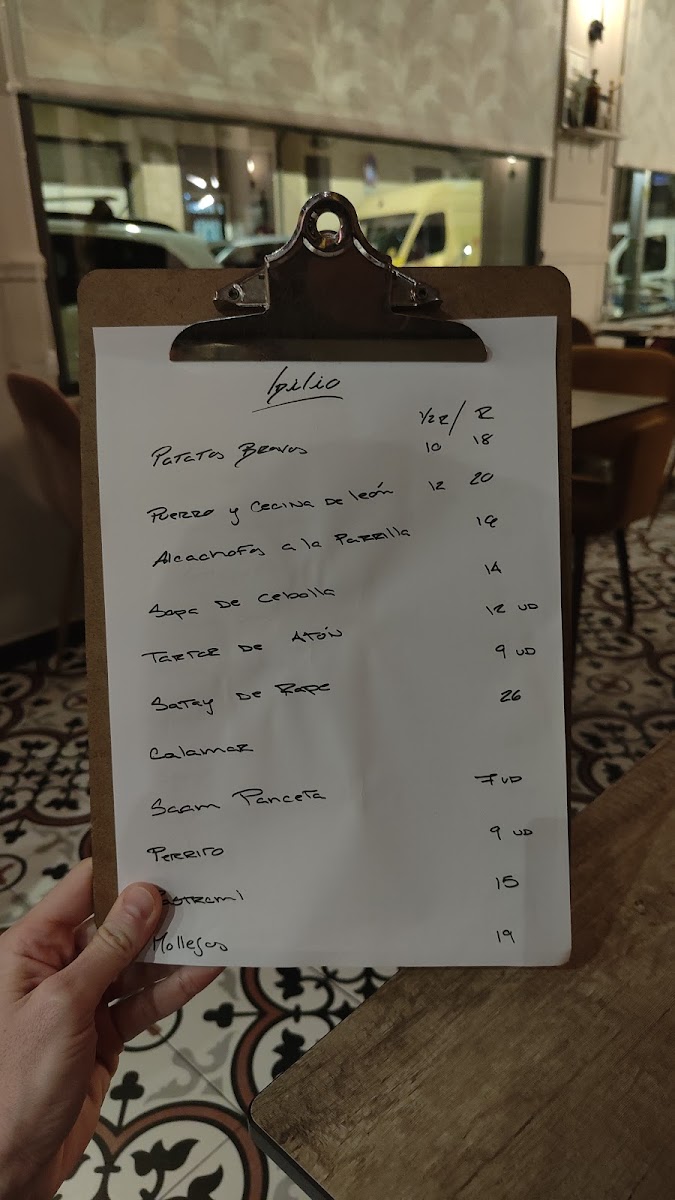 1/2 R / R
Patatas Bravas 10 18
Puerro y Cecina de León 12 20
Alcachofas a la Parrilla
Sopa de Cebolla 14
Tartar de Atún 12 UD
Satay de Rape 9 UD
Calamar 26
Ssam Panceta 7 UD
Perrito 9 UD
Pastrami 15
Mollejas 19